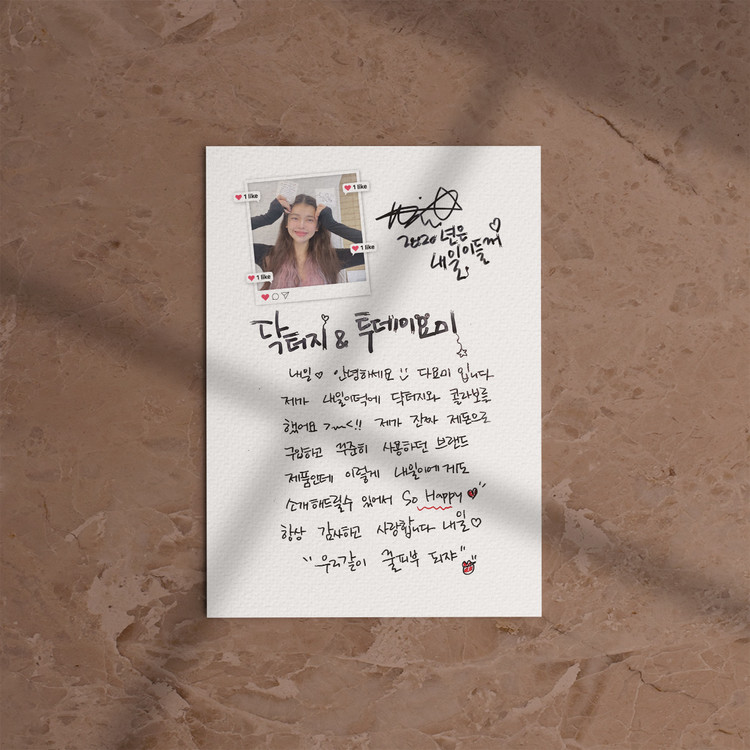 1 like
1 like
1 like
1 like
2020년은
내일이들꺼
닥터지 & 투데이요미
내일♡ 안녕하세요 다요미 입니다
제가 내일이덕에 닥터지와 콜라보를
했어요 >~<!! 제가 진짜 제돈으로
구입하고 꾸준히 사용하던 브랜드
제품인데 이렇게 내일이에게도
소개해드릴수 있어서 So Happy
항상 감사하고 사랑합니다 내일♡
"우리같이 꿀피부 되쟈"